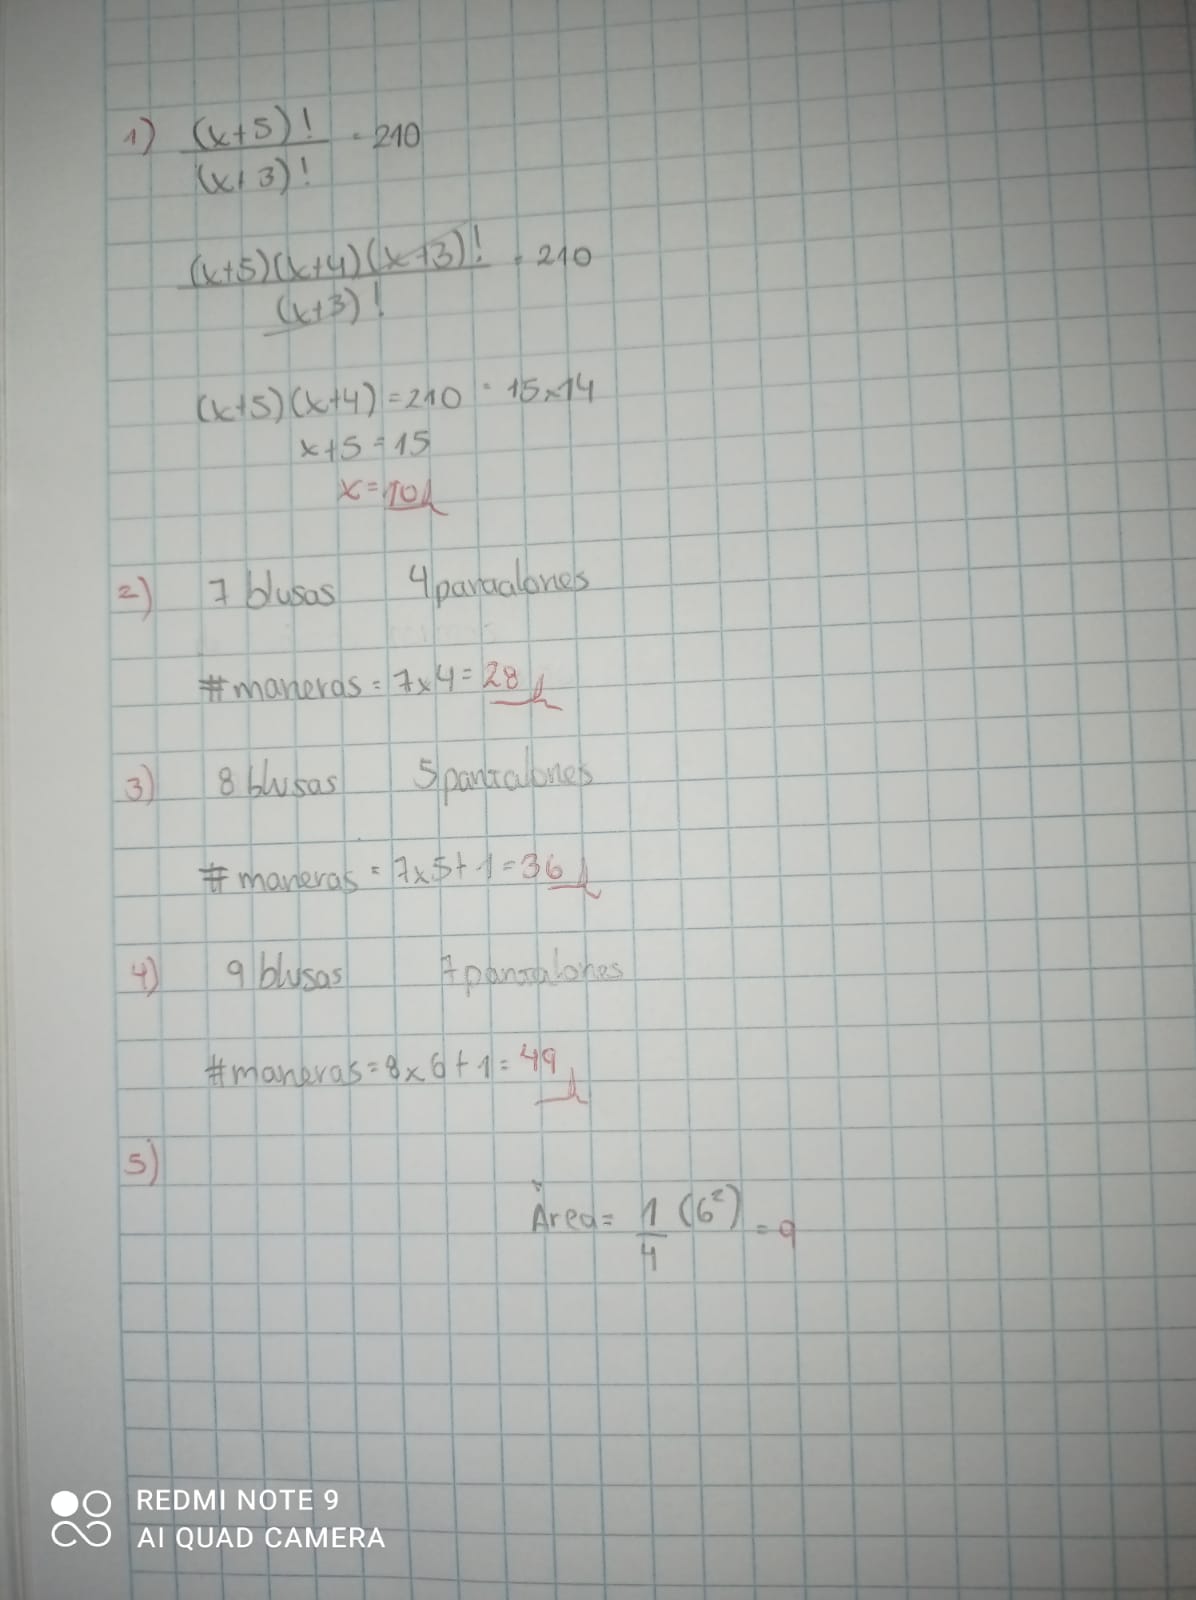 1) (x+5)! = 210
(x+3)!
(x+5)(x+4)(x+3)! = 210
(x+3)!
(x+5)(x+4) = 210 = 15x14
x+5 = 15
x = 10
2) 7 blusas 4 pantalones
# maneras = 7x4 = 28
3) 8 blusas 5 pantalones
# maneras = 7x5+1 = 36
4) 9 blusas 7 pantalones
# maneras = 8x6+1 = 49
5)
Área = 1 (6²) = 9
4
REDMI NOTE 9
AI QUAD CAMERA